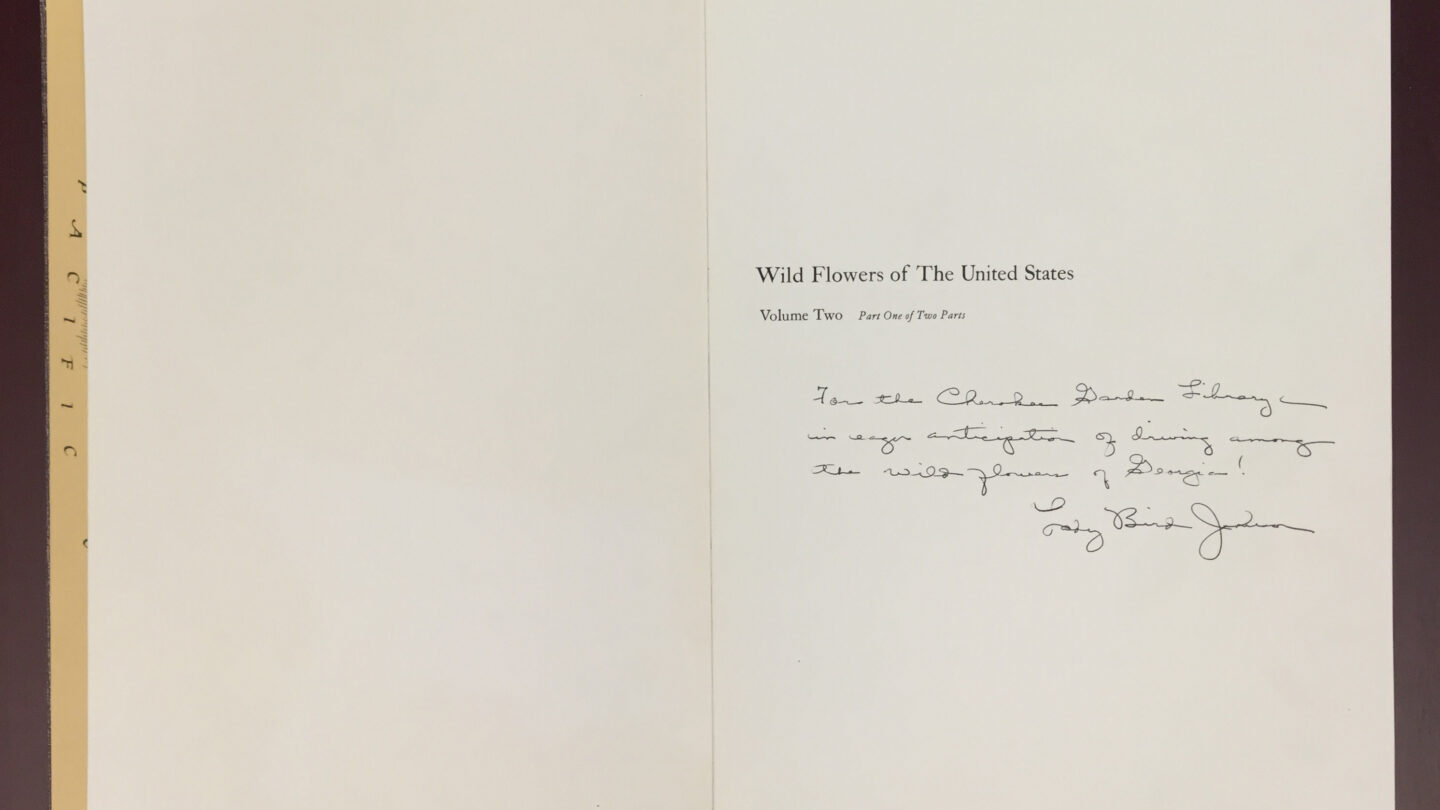 PACIFIC
Wild Flowers of The United States
Volume Two Part One of Two Parts
For the Cherokee Garden Library –
in eager anticipation of driving among
the wildflowers of Georgia!
Lady Bird Johnson